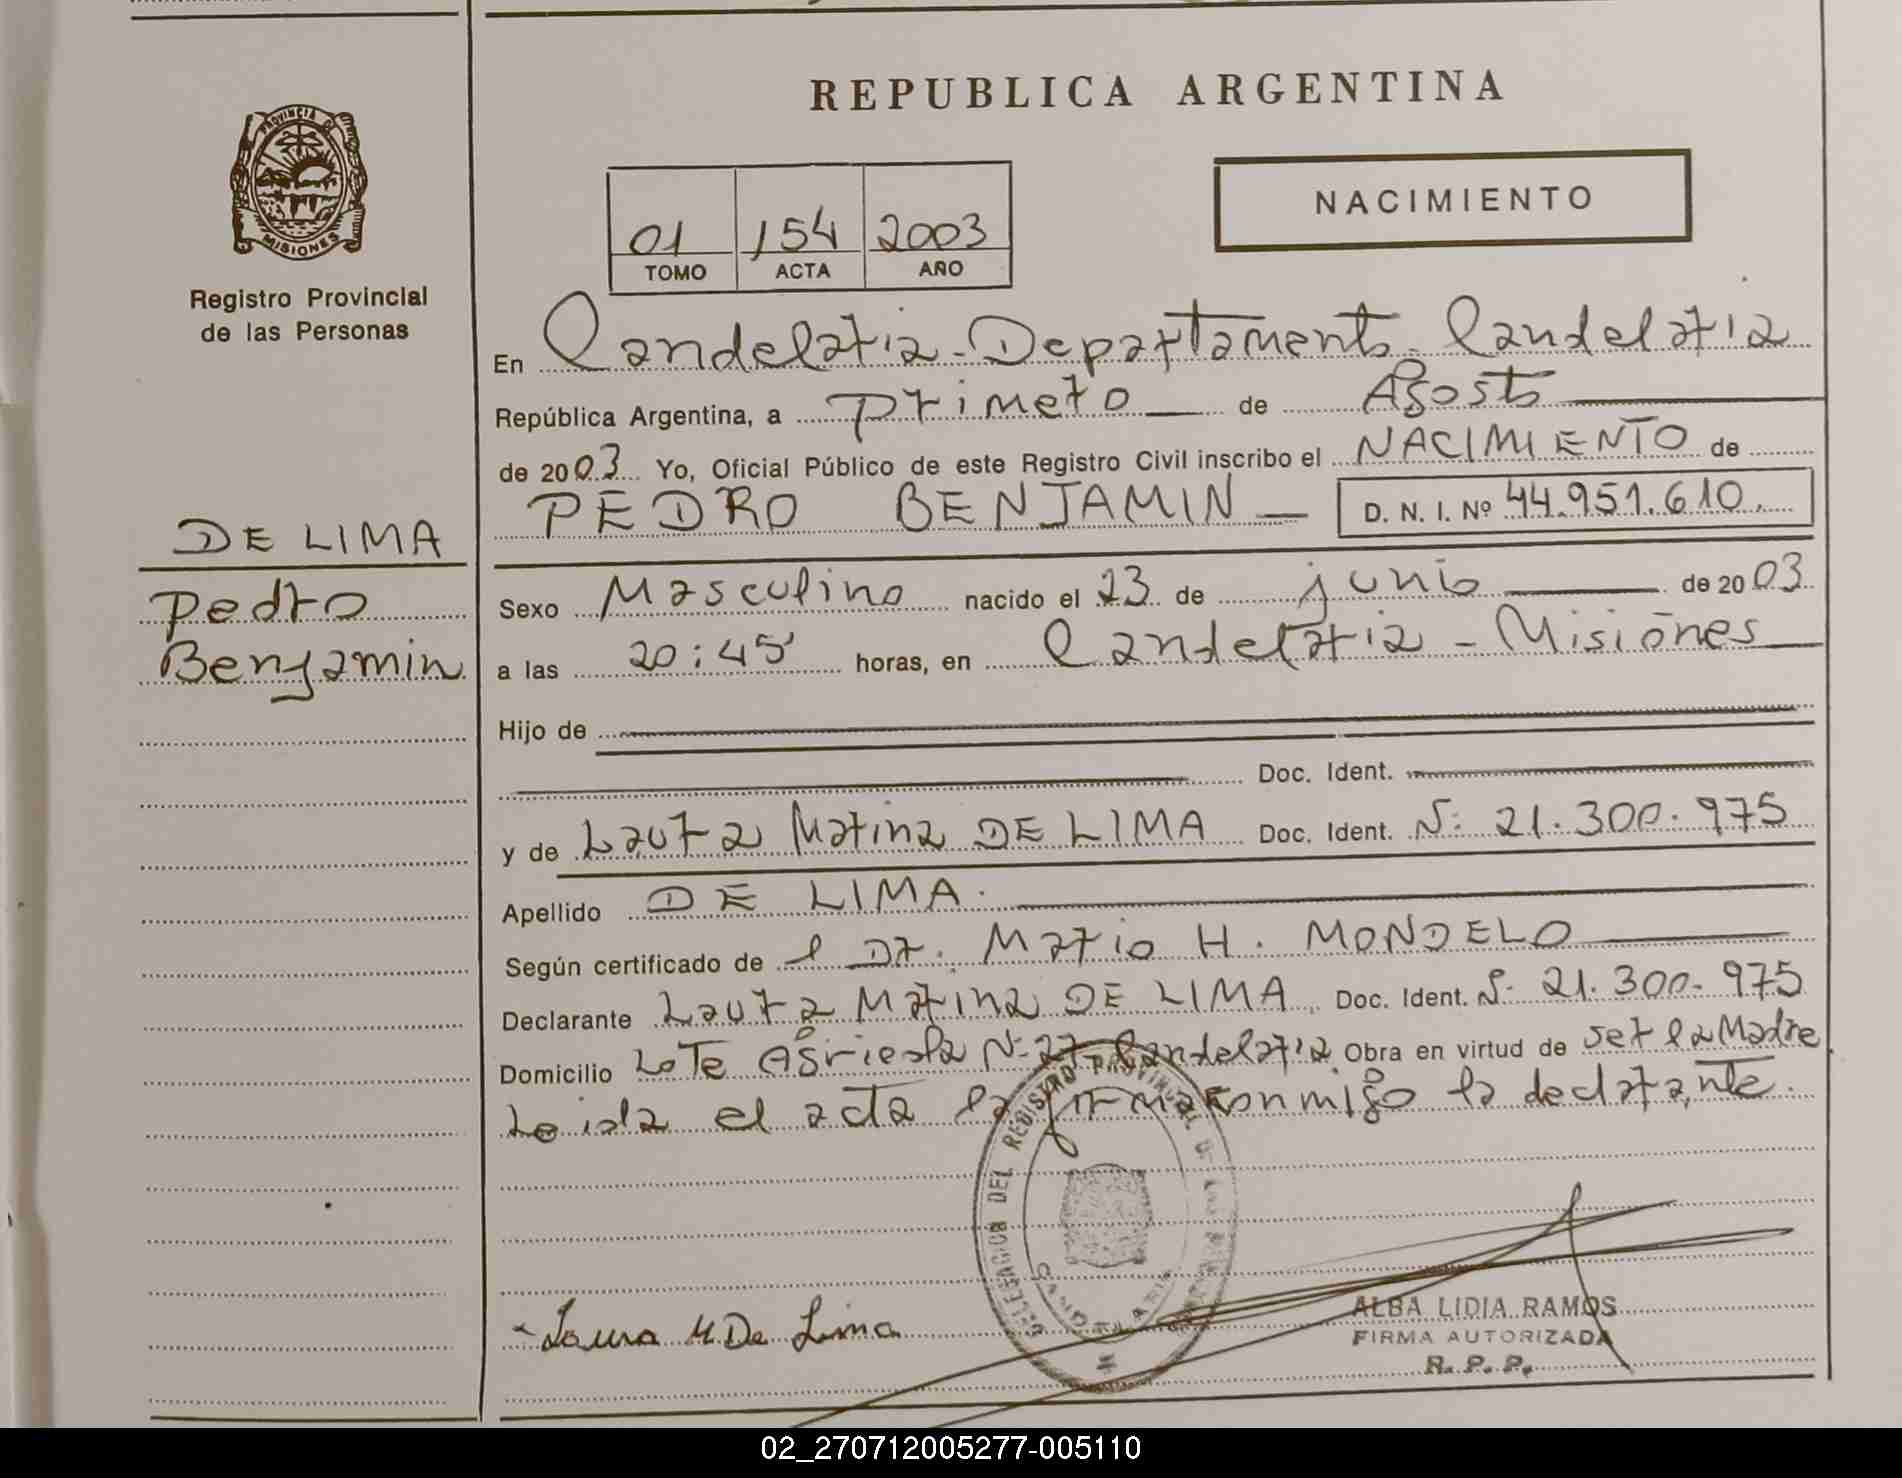 PROVINCIA DE
MISIONES
Registro Provincial
de las Personas
DE LIMA
Pedro
Benjamin
REPUBLICA ARGENTINA
01 154 2003
TOMO ACTA AÑO
NACIMIENTO
En Candelaria - Departamento Candelaria
República Argentina, a primero de Agosto
de 2003 Yo, Oficial Público de este Registro Civil inscribo el NACIMIENTO de
PEDRO BENJAMIN — D. N. I. Nº 44.951.610.
Sexo Masculino nacido el 23 de junio de 2003
a las 20:45' horas, en Candelaria - Misiones
Hijo de
Doc. Ident.
y de Laura Marina DE LIMA Doc. Ident. Nº 21.300.975
Apellido DE LIMA.
Según certificado de el Dr. Mario H. MONDELO
Declarante Laura Marina DE LIMA Doc. Ident. Nº 21.300.975
Domicilio Lote Agricola Nº 27 - Candelaria Obra en virtud de ser la Madre
Leida el acta la firma conmigo la declarante.
DELEGACION DEL REGISTRO PROVINCIAL DE LAS PERSONAS
CANDELARIA
Laura M. De Lima
ALBA LIDIA RAMOS
FIRMA AUTORIZADA
R. P. P.
02_270712005277-005110